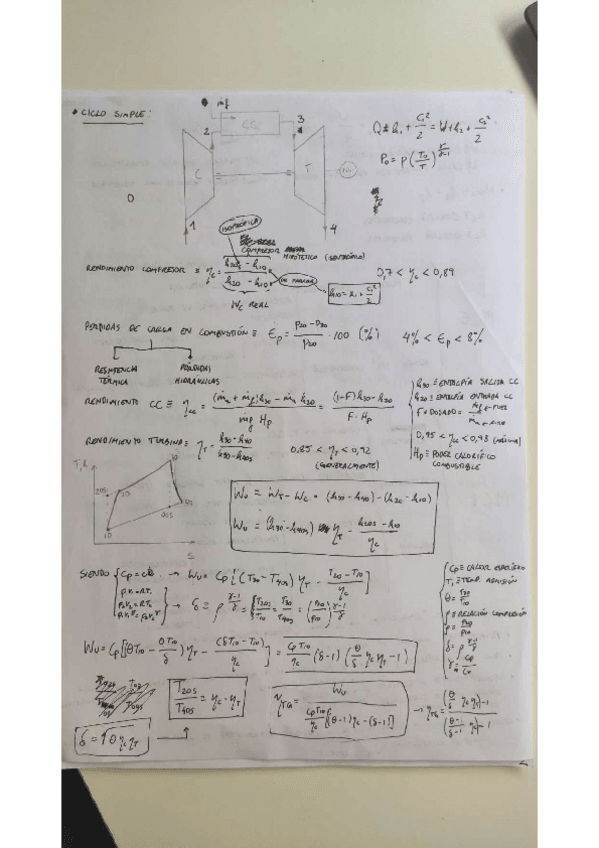 • CICLO SIMPLE:
ṁf
CC
2
3
Q + h₁ + C₁²/2 = W + h₂ + C₂²/2
C
T
P₀ = P(T₀/T)^(γ/γ-1)
1
4
ISOTRÓPICA
COMPRESOR HIPOTÉTICO (ISOTRÓPICO)
RENDIMIENTO COMPRESOR ≡ ηc = (h20s - h10)/(h20 - h10)
h10 = h1 + C₁²/2
0,7 < ηc < 0,89
Wc REAL
PÉRDIDAS DE CARGA EN COMBUSTIÓN ≡ Ep = (P20 - P30)/P20 · 100 (%)
4% < Ep < 8%
RESISTENCIA TÉRMICA
PÉRDIDAS HIDRÁULICAS
RENDIMIENTO CC ≡ ηcc = ((ṁa + ṁf)h30 - ṁa h20)/(ṁf Hp) = ((1-F)h30 - h20)/(F · Hp)
h30 ≡ ENTALPÍA SALIDA CC
h20 ≡ ENTALPÍA ENTRADA CC
F = DOSADO = ṁf/ṁa
0,95 < ηcc < 0,98
Hp ≡ PODER CALORÍFICO COMBUSTIBLE
RENDIMIENTO TURBINA ≡ ηT = (h30 - h40)/(h30 - h40s)
0,85 < ηT < 0,92
(GENERALMENTE)
T, h
20s
20
30
40
40s
10
S
Wu = WT - Wc = (h30 - h40) - (h20 - h10)
Wu = (h30 - h40s) ηT - (h20s - h10)/ηc
SIENDO
Cp = cte → Wu = Cp[(T30 - T40s) ηT - (T20s - T10)/ηc]
→ δ = ρ^(γ-1/γ) = T20s/T10 = T30/T40s = (P20/P10)^(γ-1/γ)
Cp ≡ CALOR ESPECÍFICO
T₁ ≡ TEMP. ADMISIÓN
θ = T30/T10
ρ ≡ RELACIÓN COMPRESIÓN
ρ = P20/P10
δ = ρ^(γ-1/γ)
γ = Cp/Cv
Wu = Cp[(θT10 - θT10/δ) ηT - (δT10 - T10)/ηc] = CpT10/ηc (δ-1)(θ/δ ηc ηT - 1)
T20s/T40s = ηc · ηT
ηTG = Wu/(CpT10/ηc [(θ-1)ηc - (δ-1)])
→ ηTG = (θ/δ ηc ηT - 1)/((θ-1)/(δ-1) ηc - 1)
δ = √θ ηc ηT